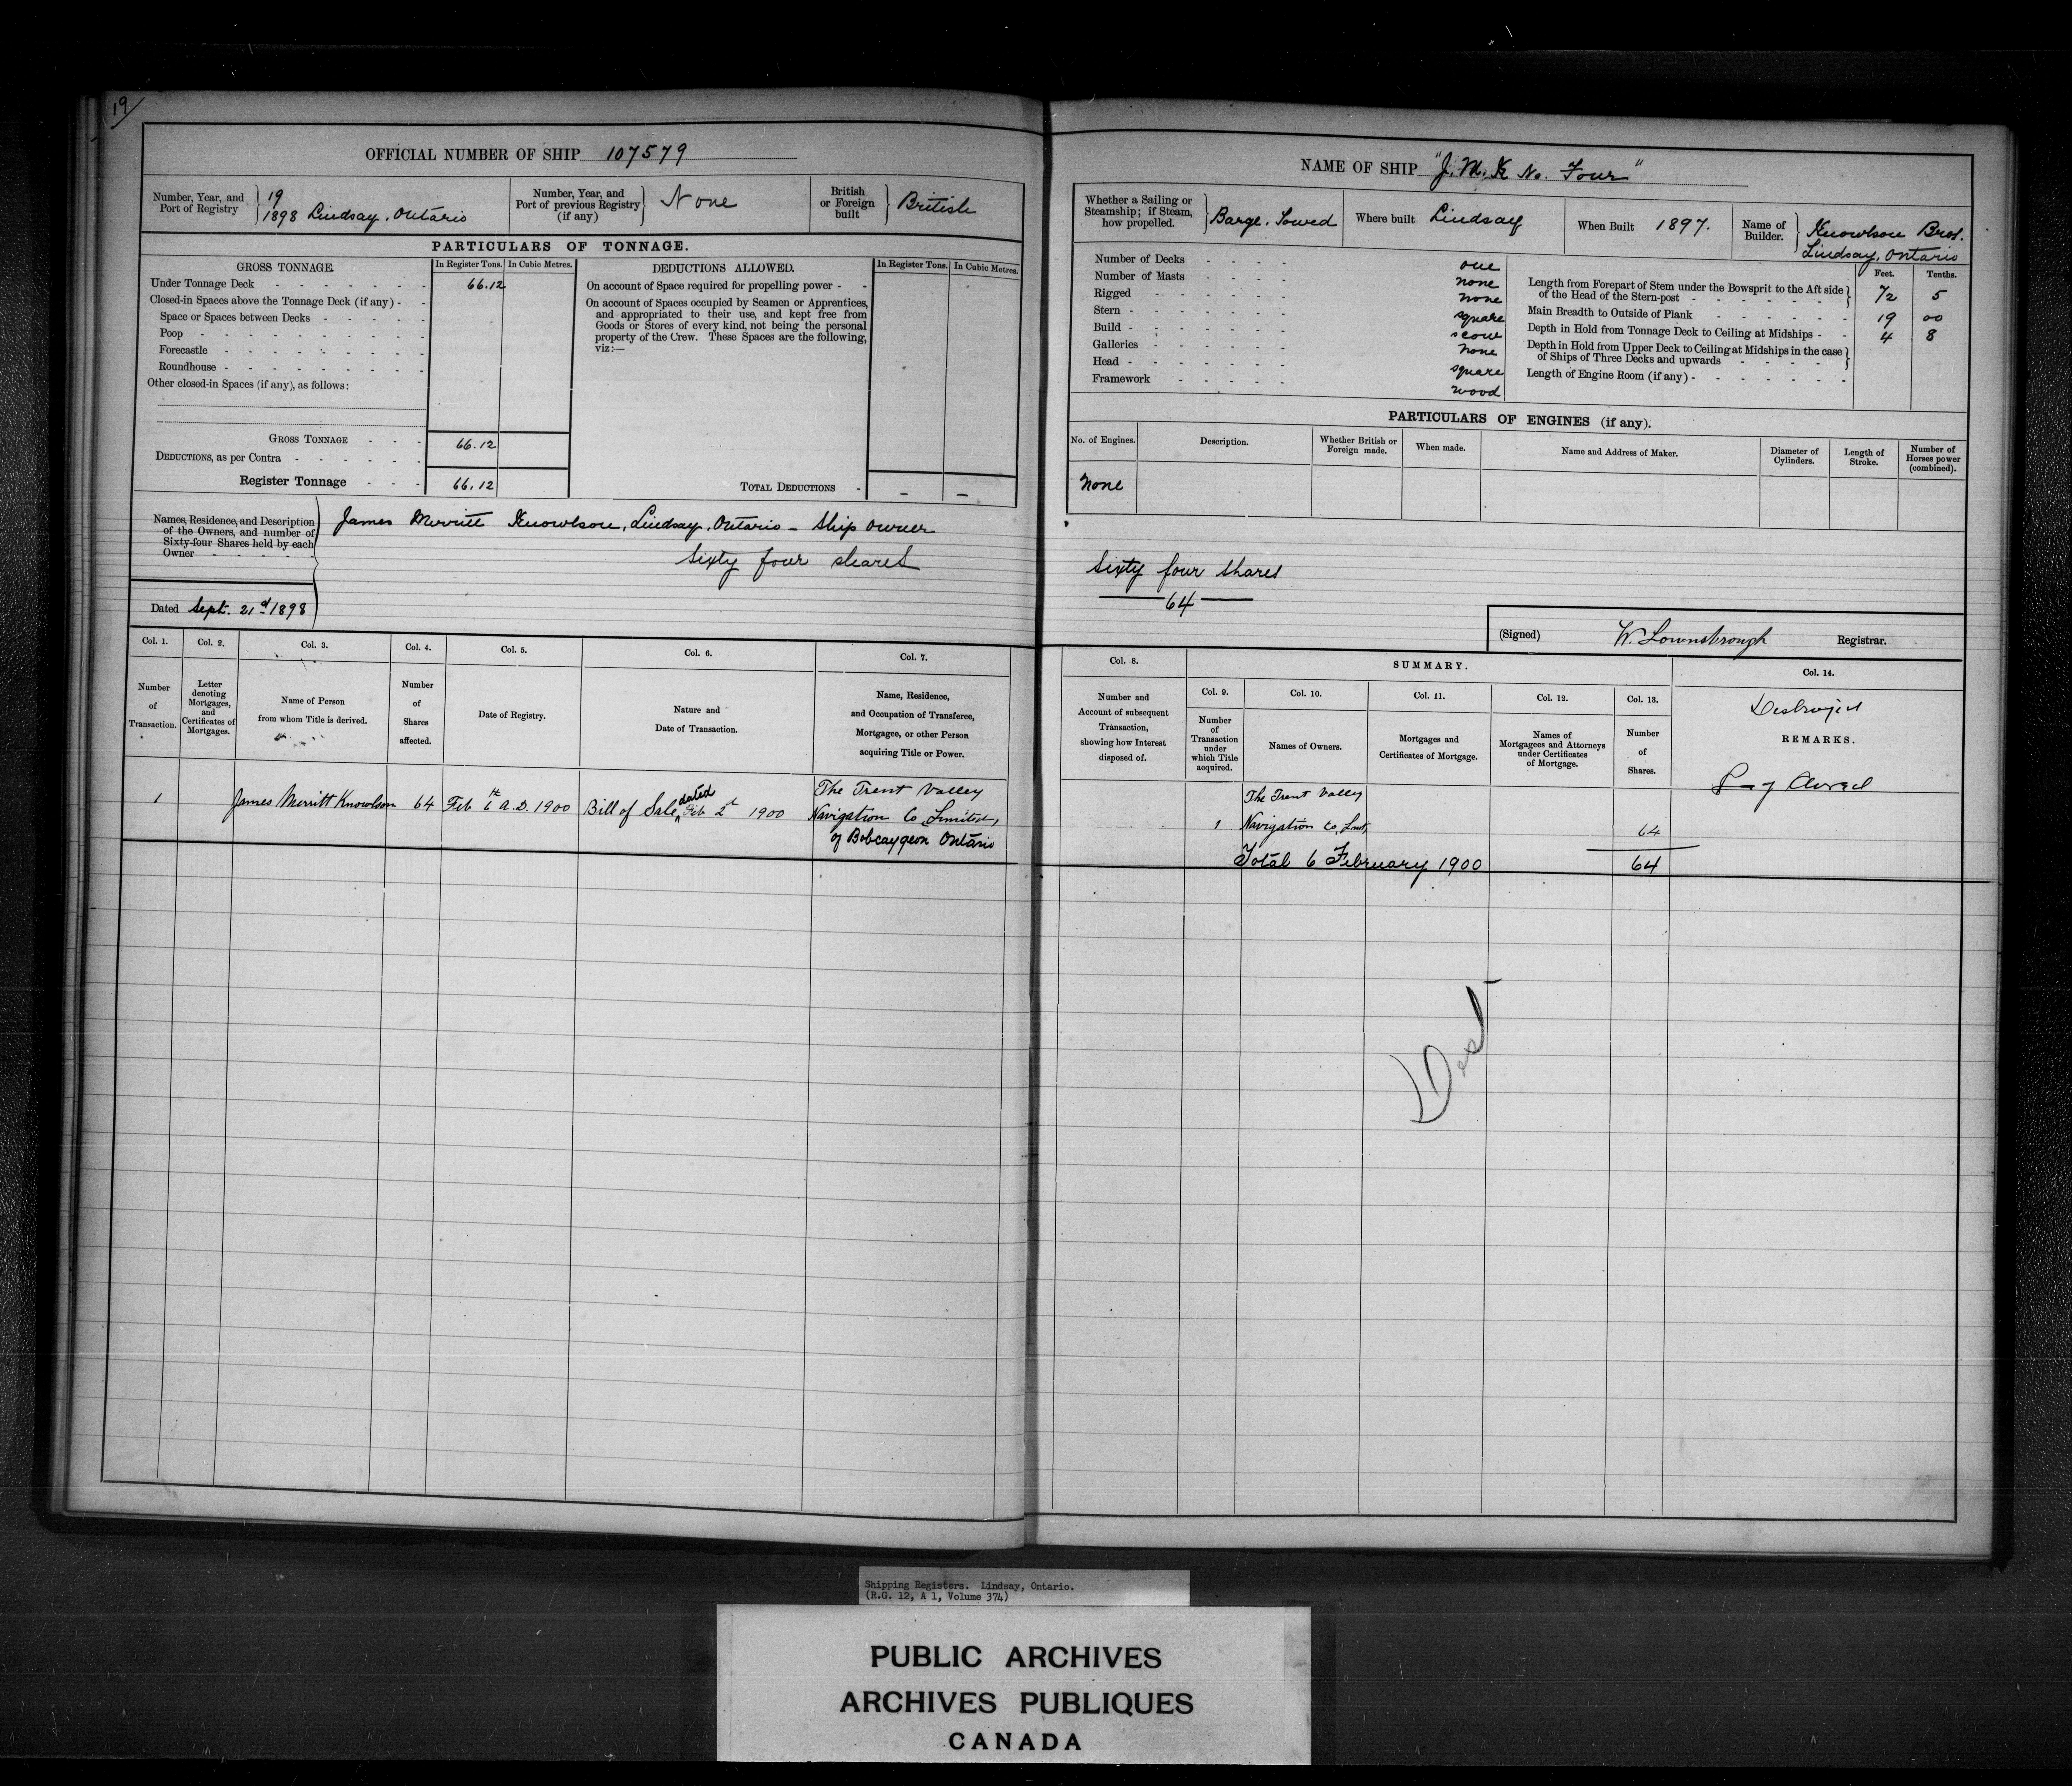 19
OFFICIAL NUMBER OF SHIP 107579
Number, Year, and Port of Registry } 19 1898 Lindsay, Ontario
Number, Year, and Port of previous Registry (if any) } None
British or Foreign built } British
PARTICULARS OF TONNAGE.
GROSS TONNAGE. In Register Tons. In Cubic Metres. DEDUCTIONS ALLOWED. In Register Tons. In Cubic Metres.
Under Tonnage Deck 66.12
Closed-in Spaces above the Tonnage Deck (if any)
Space or Spaces between Decks
Poop
Forecastle
Roundhouse
Other closed-in Spaces (if any), as follows:
On account of Space required for propelling power
On account of Spaces occupied by Seamen or Apprentices,
and appropriated to their use, and kept free from
Goods or Stores of every kind, not being the personal
property of the Crew. These Spaces are the following,
viz:—
GROSS TONNAGE 66.12
DEDUCTIONS, as per Contra
Register Tonnage 66.12
TOTAL DEDUCTIONS — —
Names, Residence, and Description
of the Owners, and number of
Sixty-four Shares held by each
Owner
James Merritt Knowlson, Lindsay, Ontario - Ship owner
Sixty four shares
Dated Sept. 21st 1898
Col. 1. Col. 2. Col. 3. Col. 4. Col. 5. Col. 6. Col. 7.
Number of Transaction.
Letter denoting Mortgages, and Certificates of Mortgages.
Name of Person from whom Title is derived.
Number of Shares affected.
Date of Registry.
Nature and Date of Transaction.
Name, Residence, and Occupation of Transferee, Mortgagee, or other Person acquiring Title or Power.
1 James Merritt Knowlson 64 Feb 6th A.D. 1900 Bill of Sale dated Feb 2d 1900 The Trent Valley
Navigation Co Limited,
of Bobcaygeon Ontario
NAME OF SHIP "J. M. K No. Four"
Whether a Sailing or Steamship; if Steam, how propelled. } Barge. Towed
Where built Lindsay
When Built 1897.
Name of Builder. } Knowlson Bros. Lindsay, Ontario
Number of Decks one
Number of Masts none
Rigged none
Stern square
Build scow
Galleries none
Head square
Framework wood
Feet. Tenths.
Length from Forepart of Stem under the Bowsprit to the Aft side
of the Head of the Stern-post 72 5
Main Breadth to Outside of Plank 19 00
Depth in Hold from Tonnage Deck to Ceiling at Midships 4 8
Depth in Hold from Upper Deck to Ceiling at Midships in the case
of Ships of Three Decks and upwards
Length of Engine Room (if any)
PARTICULARS OF ENGINES (if any).
No. of Engines. Description. Whether British or Foreign made. When made. Name and Address of Maker. Diameter of Cylinders. Length of Stroke. Number of Horses power (combined).
None
Sixty four shares
64
(Signed) W. Lownsbrough Registrar.
Col. 8. SUMMARY. Col. 14.
Col. 9. Col. 10. Col. 11. Col. 12. Col. 13.
Number and Account of subsequent Transaction, showing how Interest disposed of.
Number of Transaction under which Title acquired.
Names of Owners.
Mortgages and Certificates of Mortgage.
Names of Mortgagees and Attorneys under Certificates of Mortgage.
Number of Shares.
Destroyed
REMARKS.
Closed
The Trent Valley
1 Navigation Co, Lmt, 64
Total 6 February 1900 64
Shipping Registers. Lindsay, Ontario.
(R.G. 12, A 1, Volume 374)
PUBLIC ARCHIVES
ARCHIVES PUBLIQUES
CANADA